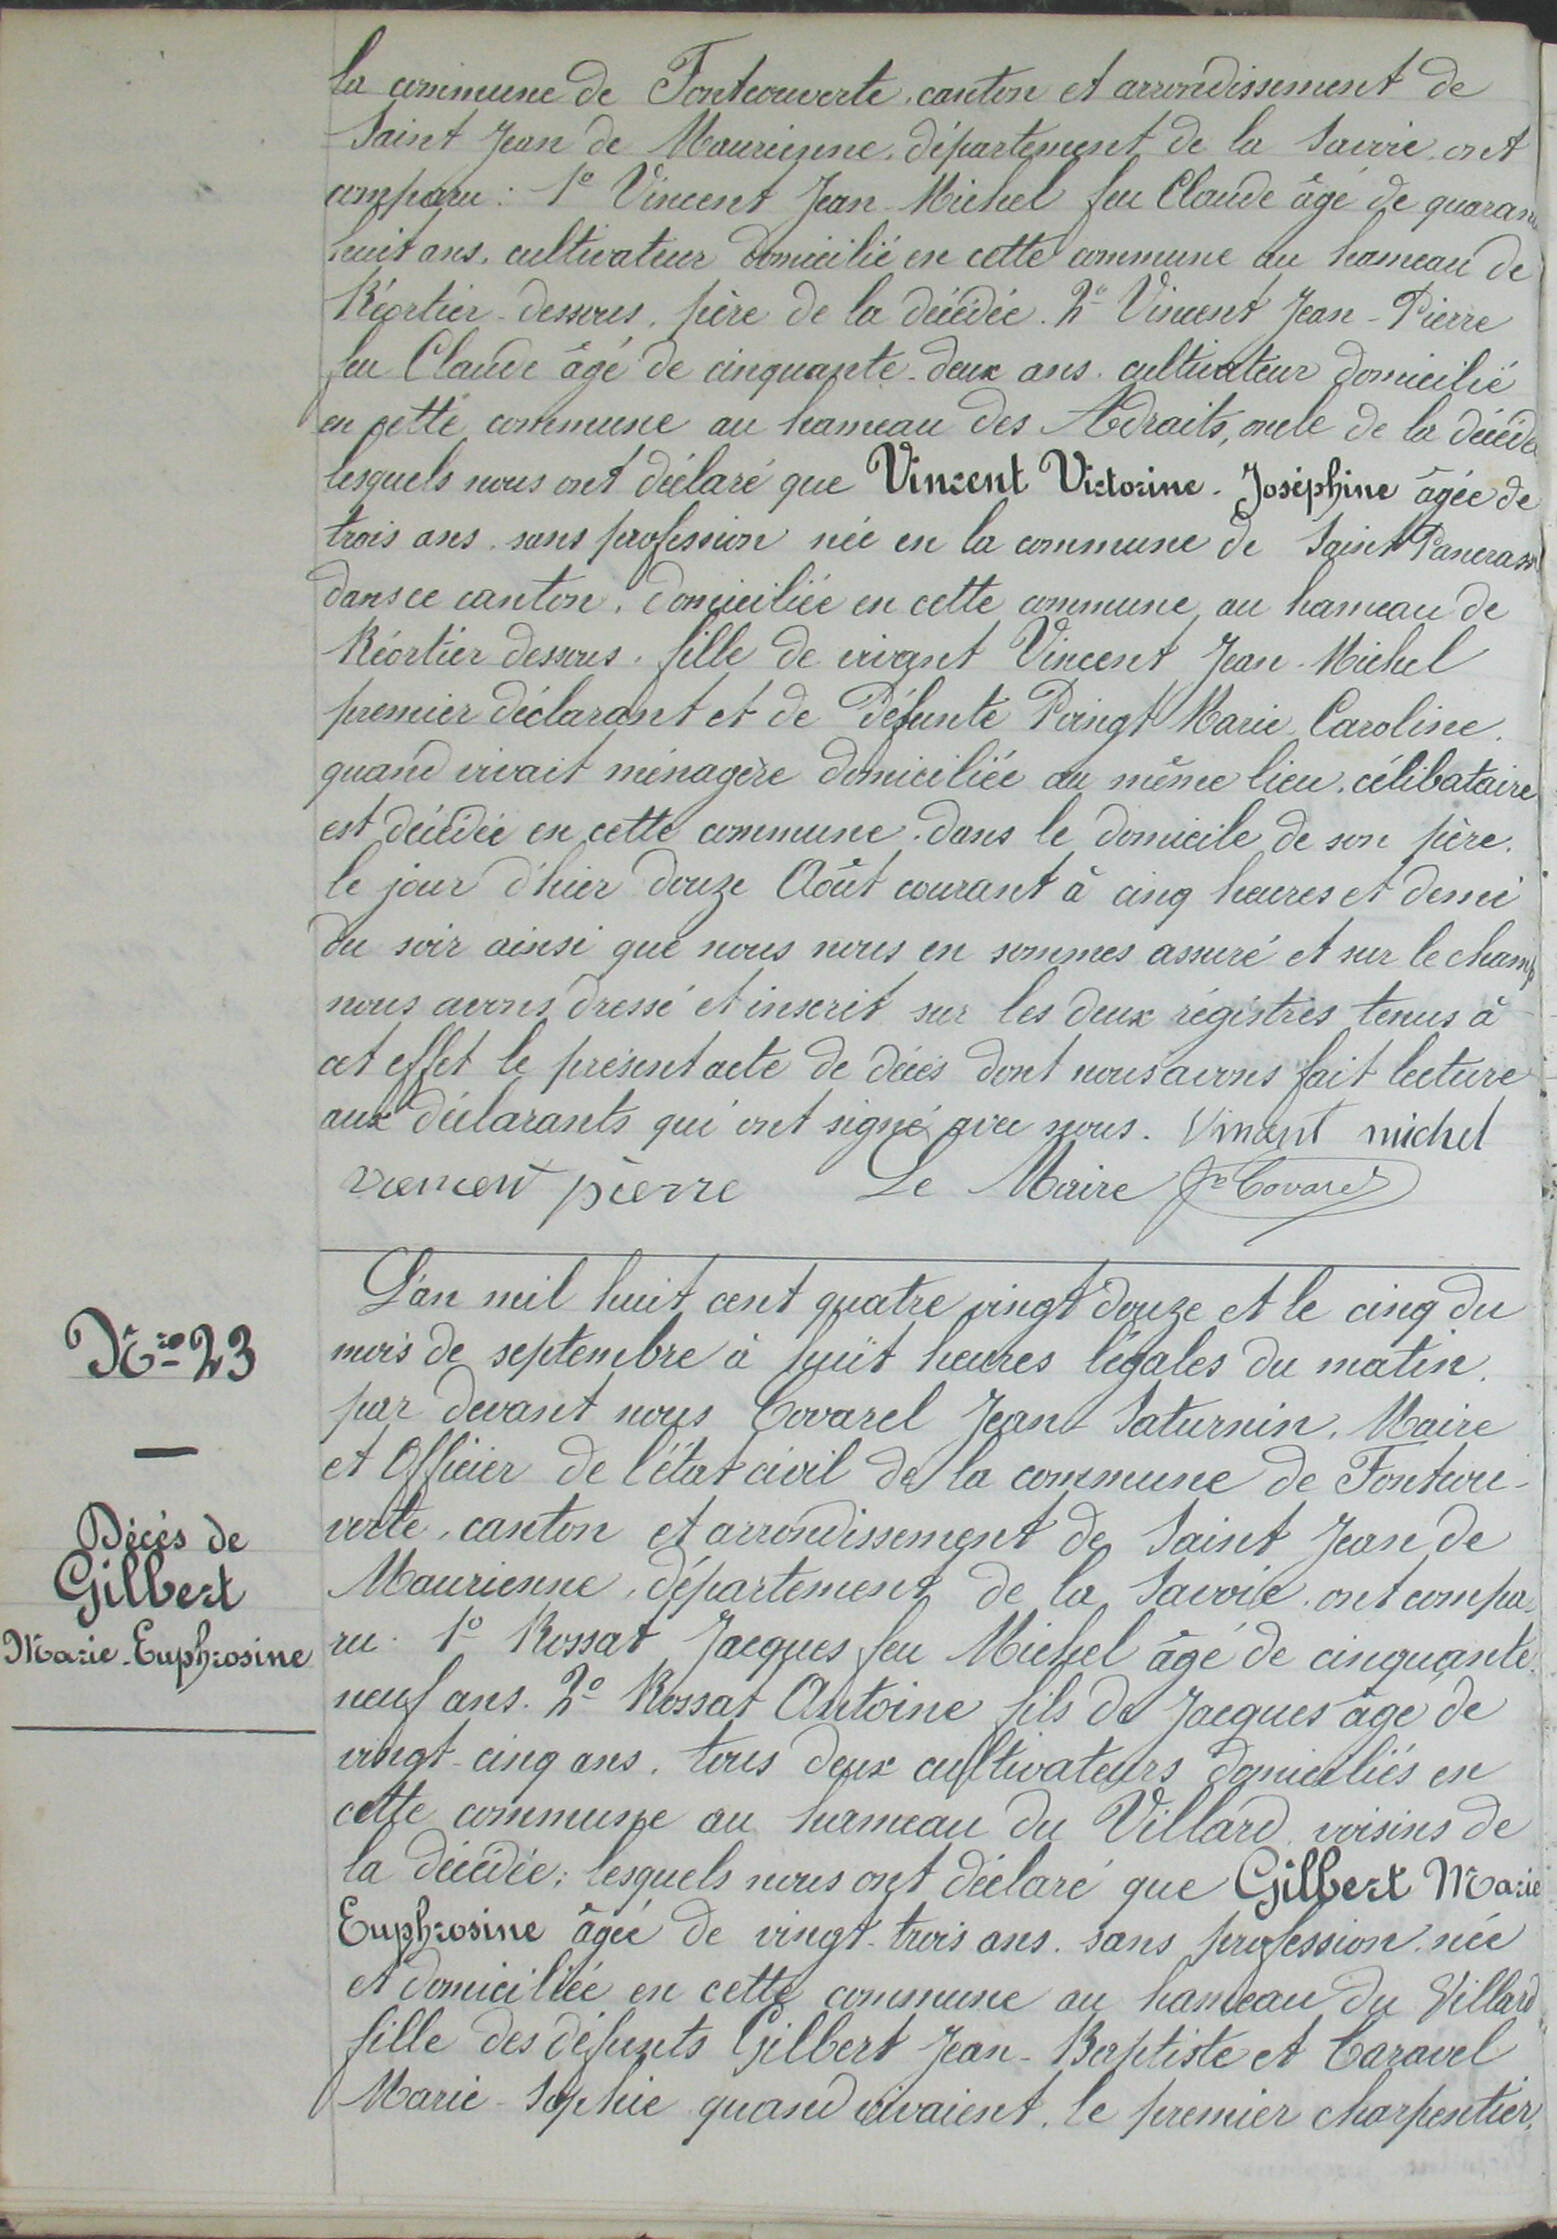 la commune de Fontcouverte, canton et arrondissement de
Saint Jean de Maurienne, département de la Savoie, ont
comparu : 1º Vincent Jean-Michel feu Claude âgé de quaran
huit ans, cultivateur domicilié en cette commune au hameau de
Réortier-dessous, père de la décédée. 2º Vincent Jean-Pierre
feu Claude âgé de cinquante-deux ans, cultivateur domicilié
en cette commune au hameau des Adraits, oncle de la décédé
lesquels nous ont déclaré que Vincent Victorine-Joséphine âgée de
trois ans, sans profession née en la commune de Saint Pancrass
dans ce canton, domiciliée en cette commune au hameau de
Réortier dessous, fille de vivant Vincent Jean-Michel
premier déclarant et de Défunte Pringt Marie-Caroline,
quand vivait ménagère domiciliée au même lieu, célibataire
est décédée en cette commune, dans le domicile de son père,
le jour d'hier douze Août courant à cinq heures et demi
du soir ainsi que nous nous en sommes assuré et sur le champ
nous avons dressé et inscrit sur les deux régistres tenus à
cet effet le présent acte de décès dont nous avons fait lecture
aux déclarants qui ont signé avec nous. Vincent michel
vencent pierre Le Maire Jn Covarel
Nro 23
Décès de
Gilbert
Marie-Euphrosine
L'an mil huit cent quatre vingt douze et le cinq du
mois de septembre à huit heures légales du matin,
par devant nous Covarel Jean-Saturnin, Maire
et Officier de l'état civil de la commune de Fontcou-
verte, canton et arrondissement de Saint Jean de
Maurienne, département de la Savoie, ont compa-
ru. 1º Rossat Jacques feu Michel âgé de cinquante-
neuf ans. 2º Rossat Antoine fils de Jacques âgé de
vingt-cinq ans, tous deux cultivateurs domiciliés en
cette commune au hameau du Villard, voisins de
la décédée; lesquels nous ont déclaré que Gilbert Marie
Euphrosine âgée de vingt-trois ans, sans profession, née
et domiciliée en cette commune au hameau du Villard,
fille des défunts Gilbert Jean-Baptiste et Caravel
Marie-Sophie quand vivaient, le premier charpentier,